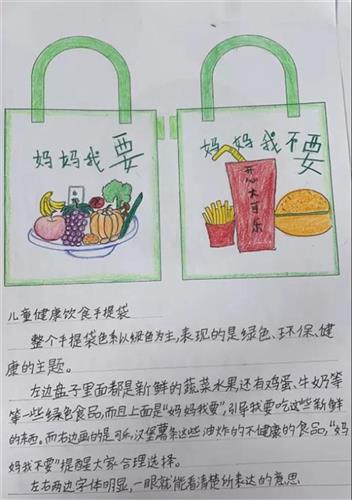 妈妈我要
妈妈我不要
开心大可乐
儿童健康饮食手提袋
整个手提袋色系以绿色为主,表现的是绿色、环保、健
康的主题。
左边盘子里面都是新鲜的蔬菜水果还有鸡蛋、牛奶等
等一些绿色食品,而且上面是“妈妈我要”,引导我要吃这些新鲜
的东西。而右边画的是可乐,汉堡薯条这些油炸的不健康的食品,“妈
妈我不要”提醒大家合理选择。
左右两边字体明显,一眼就能看清楚所表达的意思